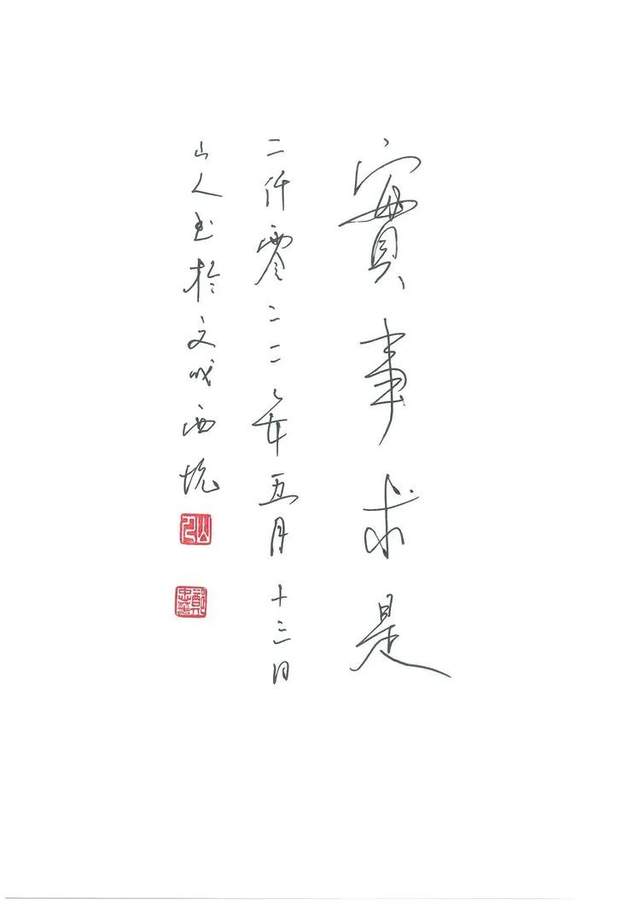 實事求是
二仟零二二年五月十三日
山人书於文成西坑
山人